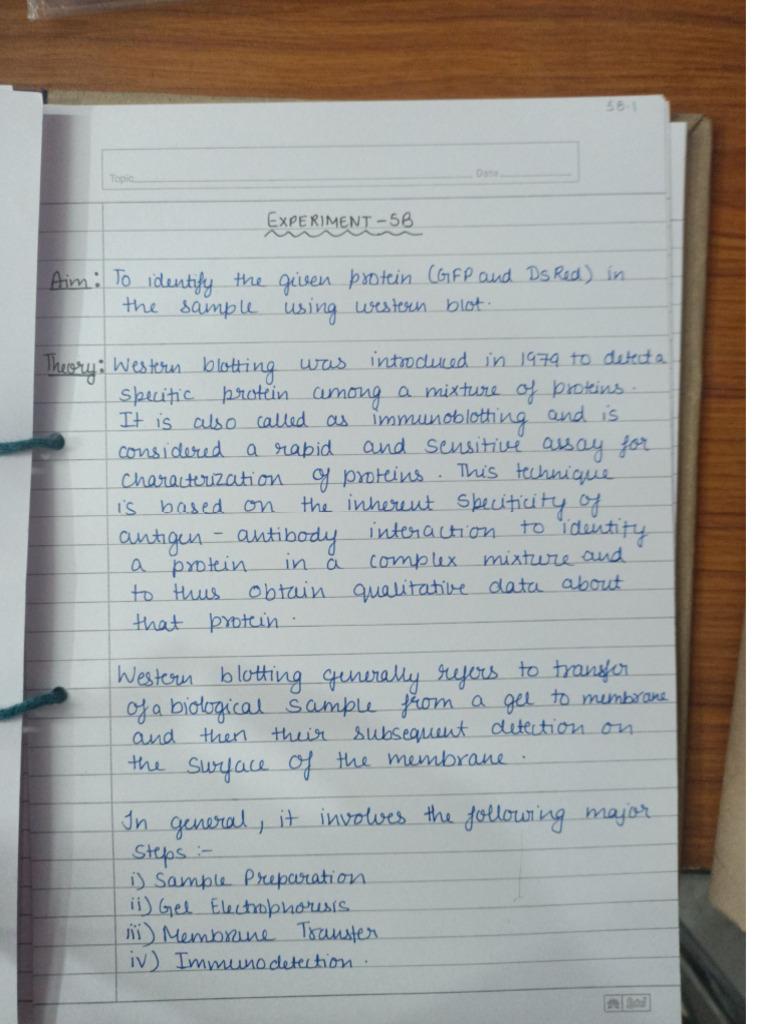 5B-1
Topic
Date
EXPERIMENT-5B
Aim: To identify the given protein (GFP and DsRed) in
the sample using western blot.
Theory: Western blotting was introduced in 1979 to detect a
specific protein among a mixture of proteins.
It is also called as immunoblotting and is
considered a rapid and sensitive assay for
characterization of proteins. This technique
is based on the inherent specificity of
antigen-antibody interaction to identify
a protein in a complex mixture and
to thus obtain qualitative data about
that protein.
Western blotting generally refers to transfer
of a biological sample from a gel to membrane
and then their subsequent detection on
the surface of the membrane.
In general, it involves the following major
steps :-
i) Sample Preparation
ii) Gel Electrophoresis
iii) Membrane Transfer
iv) Immunodetection.